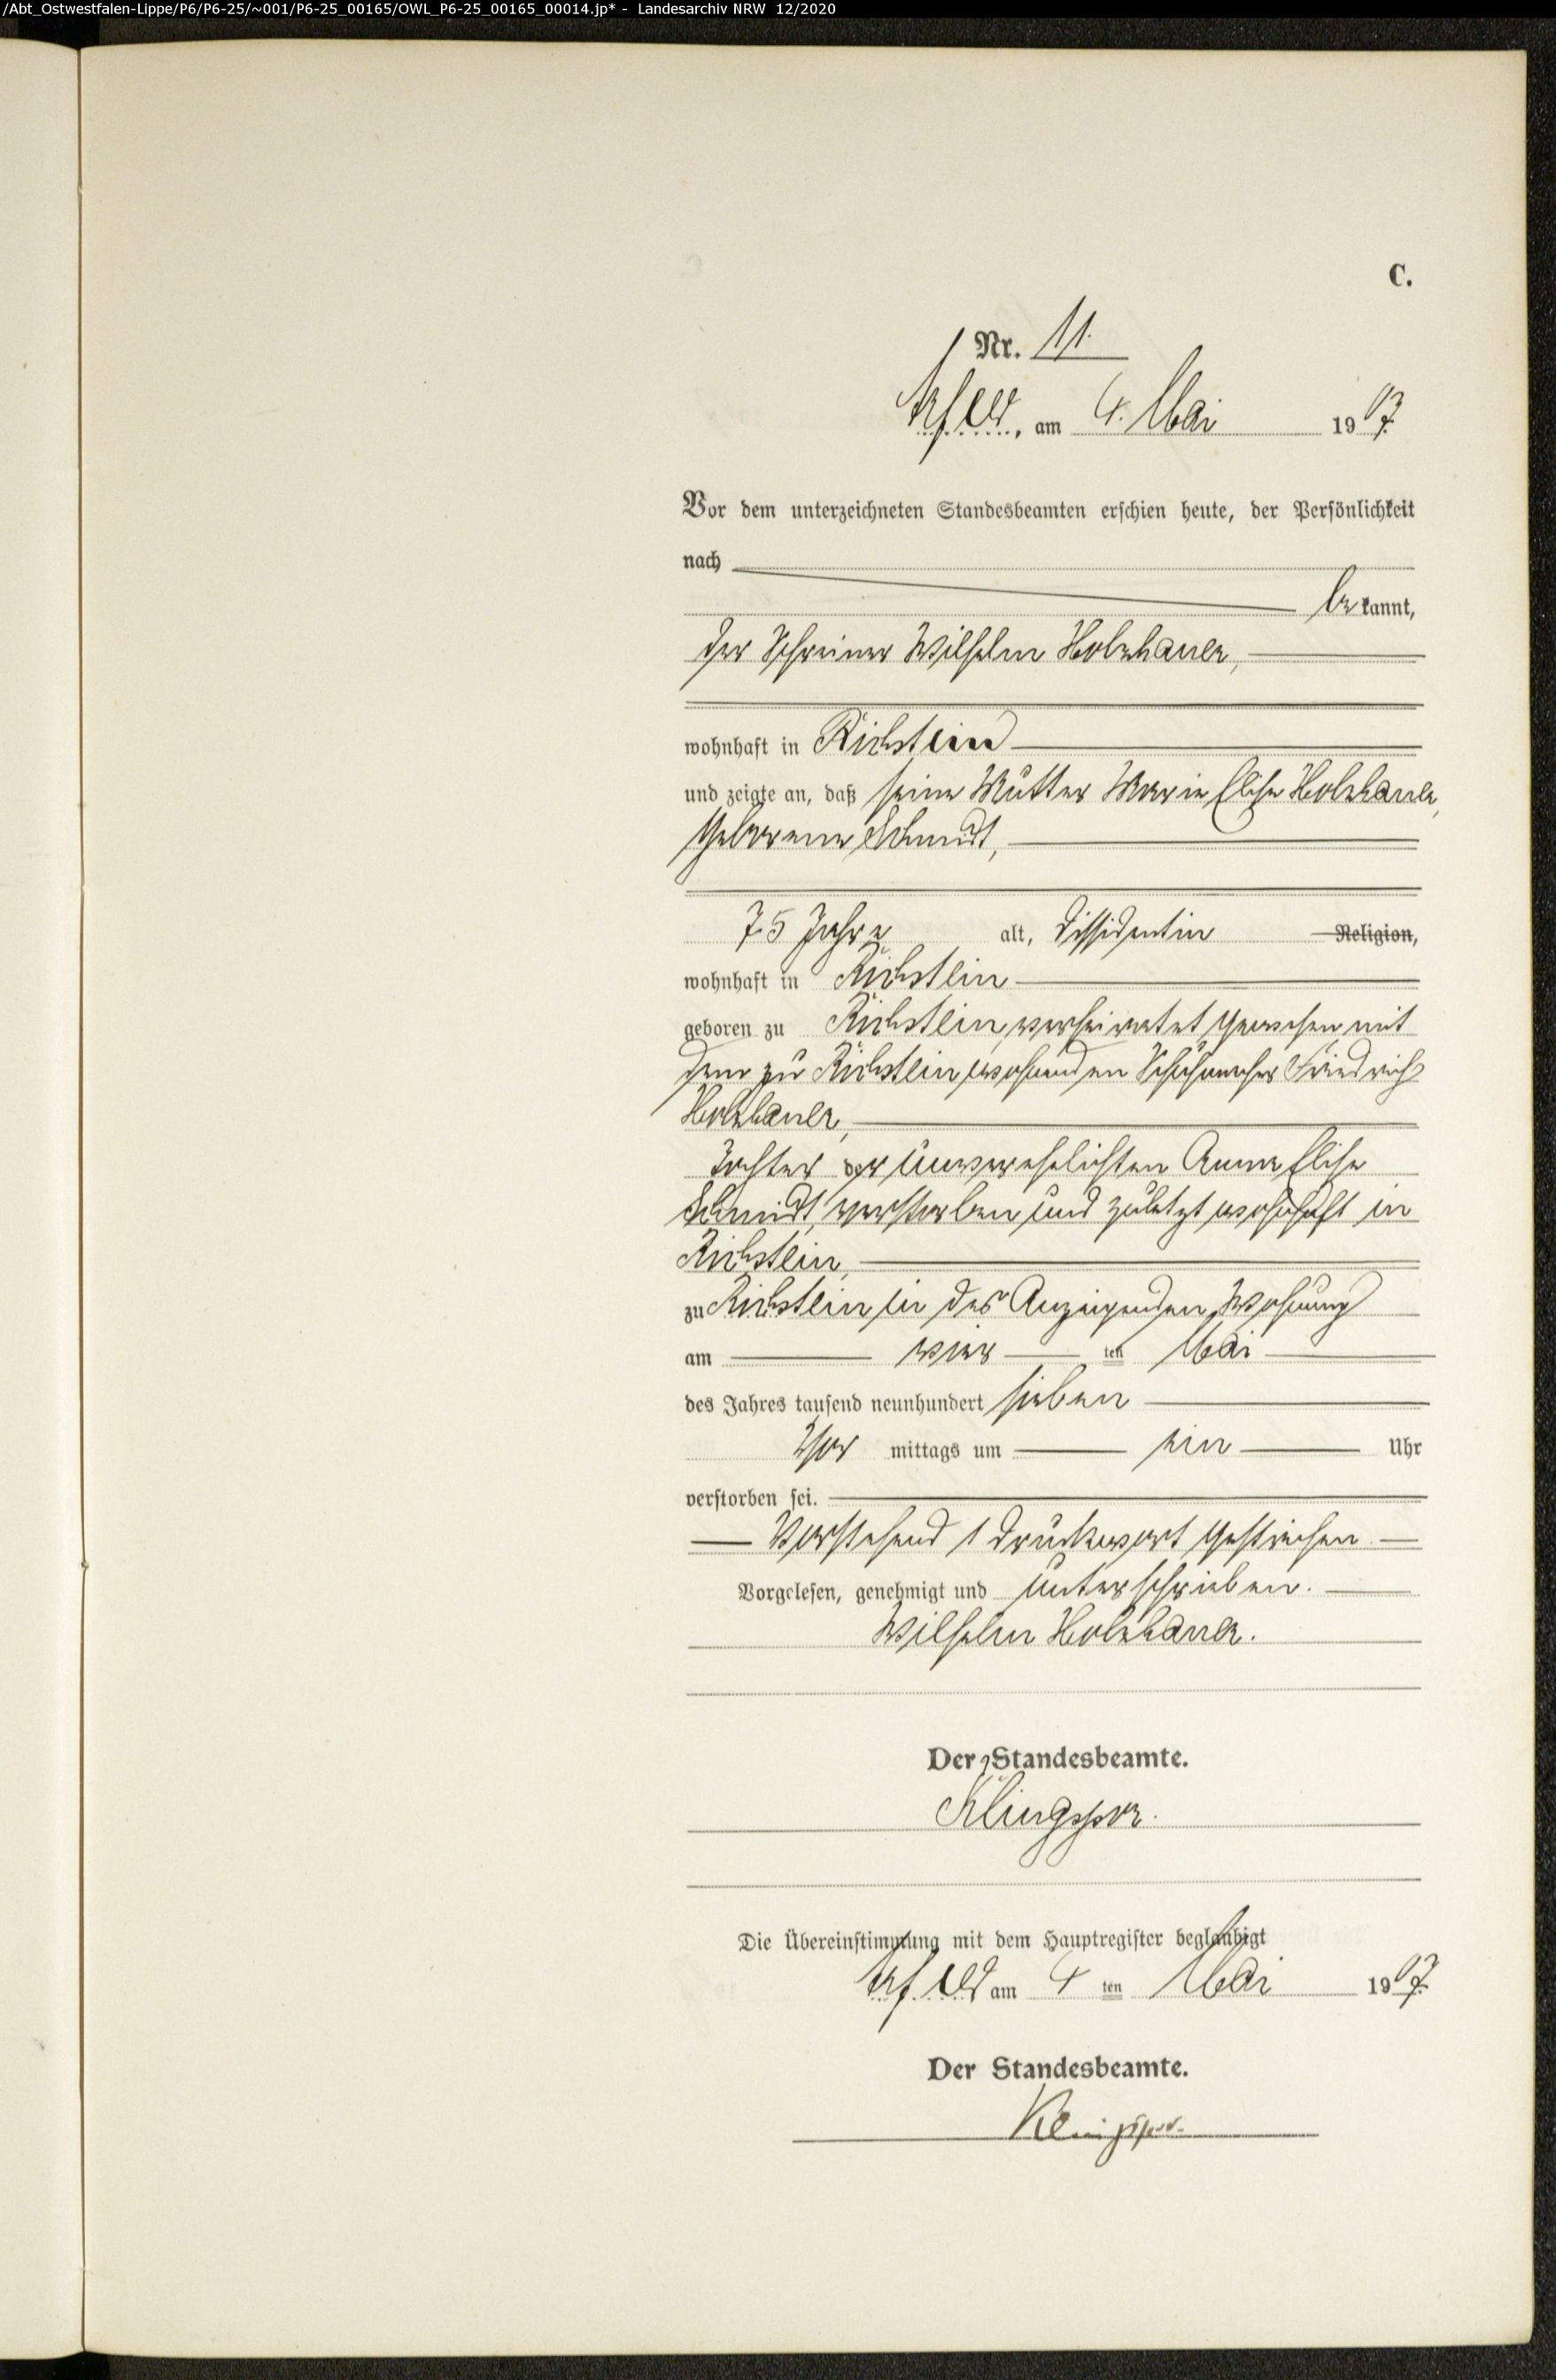 /Abt_Ostwestfalen-Lippe/P6/P6-25/~001/P6-25_00165/OWL_P6-25_00165_00014.jp* - Landesarchiv NRW 12/2020
C.
Nr. 11.
Arfeld, am 4. Mai 1907.
Vor dem unterzeichneten Standesbeamten erschien heute, der Persönlichkeit
nach
bekannt,
der Schreiner Wilhelm Holzhauer,
wohnhaft in Richstein
und zeigte an, daß seine Mutter Marie Elise Holzhauer,
geborene Schmidt,
75 Jahre alt, Dissidentin Religion,
wohnhaft in Richstein
geboren zu Richstein, verheiratet gewesen mit
dem zu Richstein wohnenden Schuhmacher Friedrich
Holzhauer,
Tochter der unverehelichten Anna Elise
Schmidt, verstorben und zuletzt wohnhaft in
Richstein,
zu Richstein in des Anzeigenden Wohnung
am vier ten Mai
des Jahres tausend neunhundert sieben
Vor mittags um ein Uhr
verstorben sei.
Vorstehend 1 Druckwort gestrichen.
Vorgelesen, genehmigt und unterschrieben.
Wilhelm Holzhauer.
Der Standesbeamte.
Klingspor.
Die Übereinstimmung mit dem Hauptregister beglaubigt
Arfeld am 4 ten Mai 1907.
Der Standesbeamte.
Klingspor.